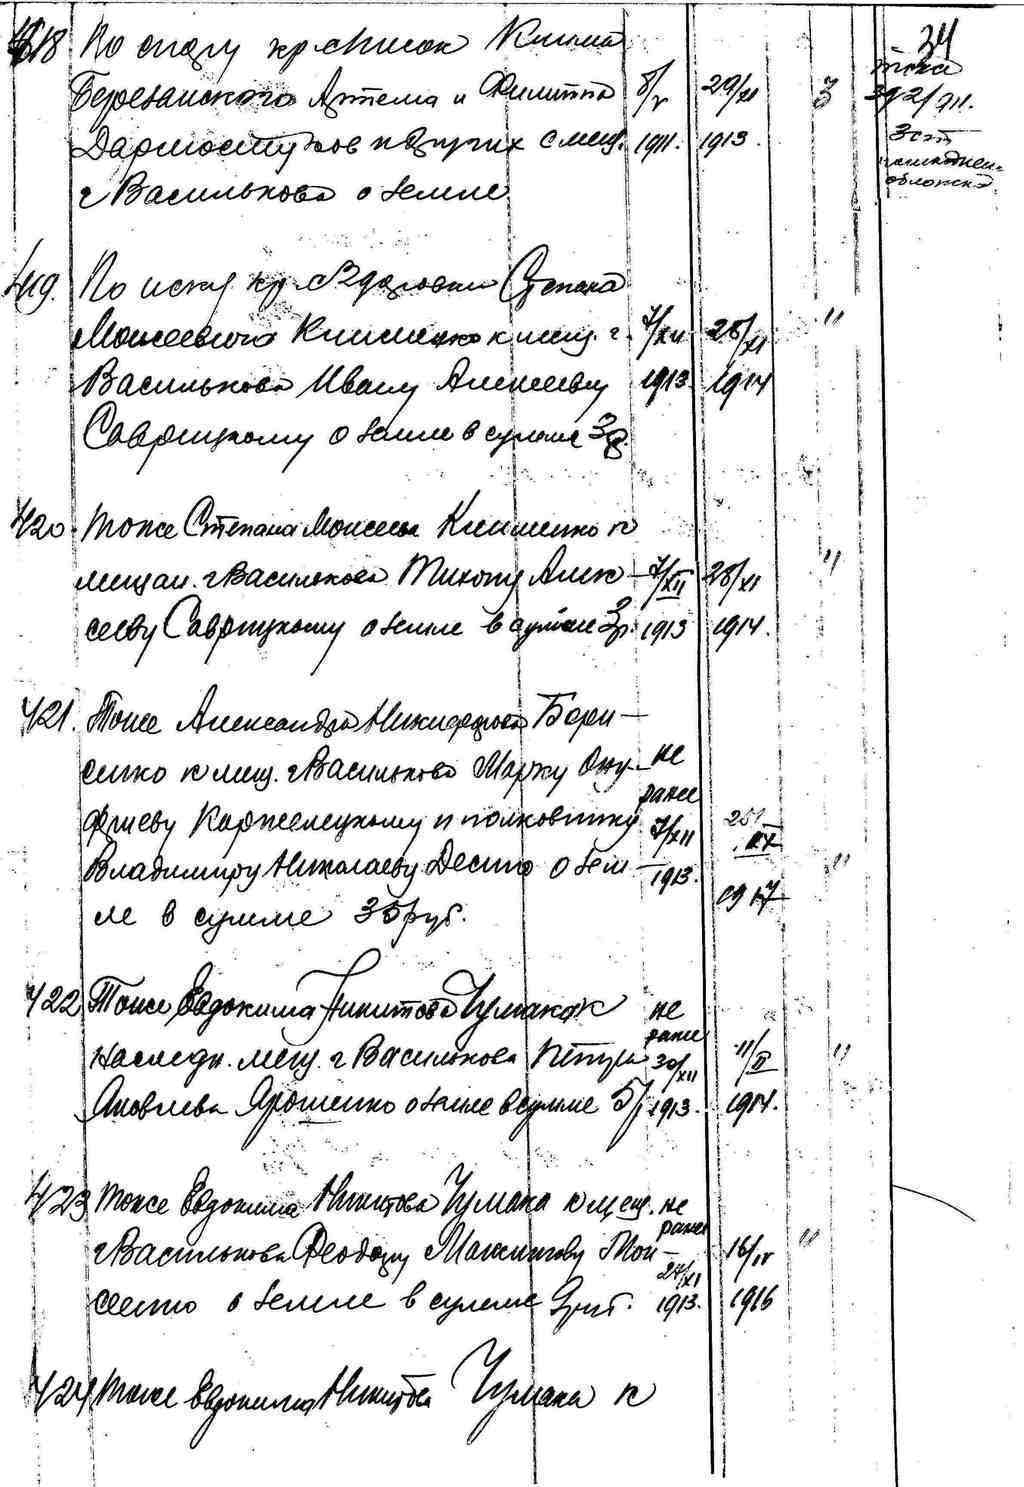 34
418 По спору крестьян Клима
Березанского Артема и Филиппа 8/V 29/XI 3
Дармостуков и других с мещ. 1911. 1913.
г Василькова о земле
392/911.
3 ст
обложка
419. По иску кр. Степана
Моисеевича Клименко к мещ. г. 7/XII 28/XI "
Василькова Ивану Алексееву 1913. 1914
Саврицкому о земле в сумме 3 р.
420 тоже Степана Моисеева Клименко к
мещан. г Василькова Тихону Алек- 7/XII 28/XI "
сееву Саврицкому о земле в сумме 3 р. 1913 1914.
421. Тоже Александра Никифорова Бори-
сенко к мещ. г Василькова Марку Ону- не
фриеву Каржелецкому и полковнику ранее 7/XII
Владимиру Николаеву Десино о зем- 1913. "
ле в сумме 35 руб. 1917
422 Тоже Евдокима Никитова Чумака к не
наследн. мещ. г Василькова Петра ранее 30/XII 11/II "
Яковлева Ярошенко о земле в сумме 5 р. 1913. 1914.
423 тоже Евдокима Никитова Чумака к мещ. не
г Василькова Феодору Максимову Мои- ранее 24/XI 16/IV "
сеенко о земле в сумме 1913. 1916
424 тоже Евдокима Никитова Чумака к